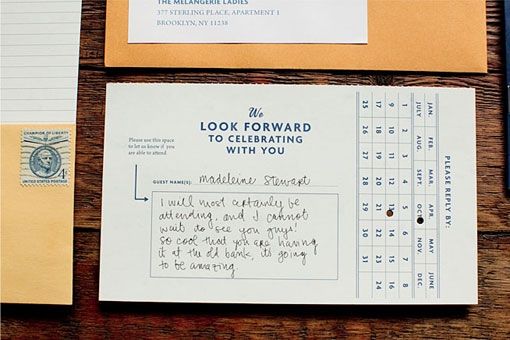 THE MELANGERIE LADIES
377 STERLING PLACE, APARTMENT 1
BROOKLYN, NY 11238
CHAMPION OF LIBERTY
4¢
UNITED STATES POSTAGE
We
LOOK FORWARD
TO CELEBRATING
WITH YOU
Please use this space
to let us know if you
are able to attend
GUEST NAME(S): Madeleine Stewart
I will most certainly be
attending. and I cannot
wait to see you guys!
so cool that you are having
it at the old bank, its going
to be amazing.
PLEASE REPLY BY:
JAN. FEB. MAR. APR. MAY JUNE
JULY AUG. SEPT. OCT. NOV. DEC.
1 2 3 4 5 6 7 8
9 10 11 12 13 14 15 16
17 18 19 20 21 22 23 24
25 26 27 28 29 30 31